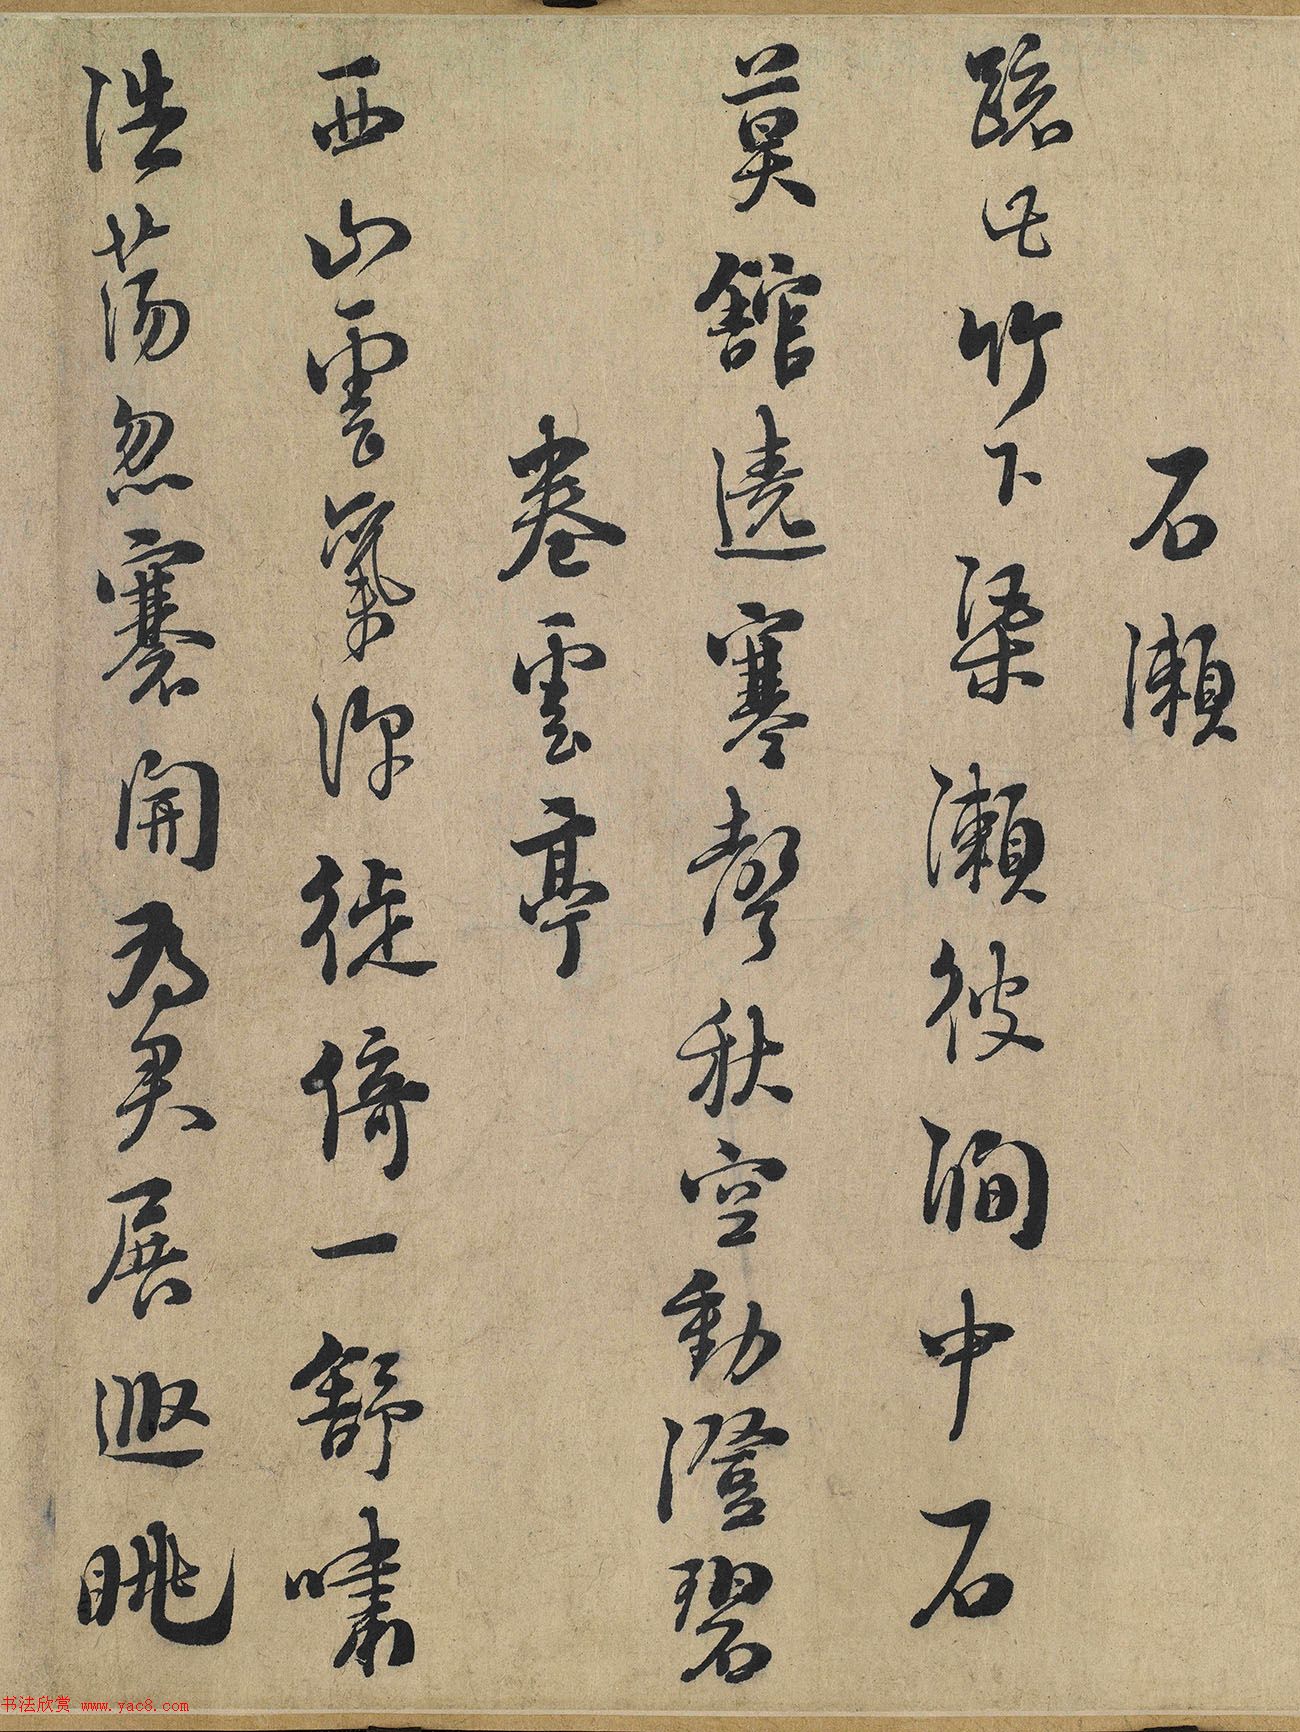 石瀨
疏此竹下渠瀨彼澗中石
莫館遶寒聲秋空動澄碧
卷雲亭
西山雲氣深徙倚一舒嘯
浩蕩忽褰開為君展遐眺
书法欣赏 www.yac8.com